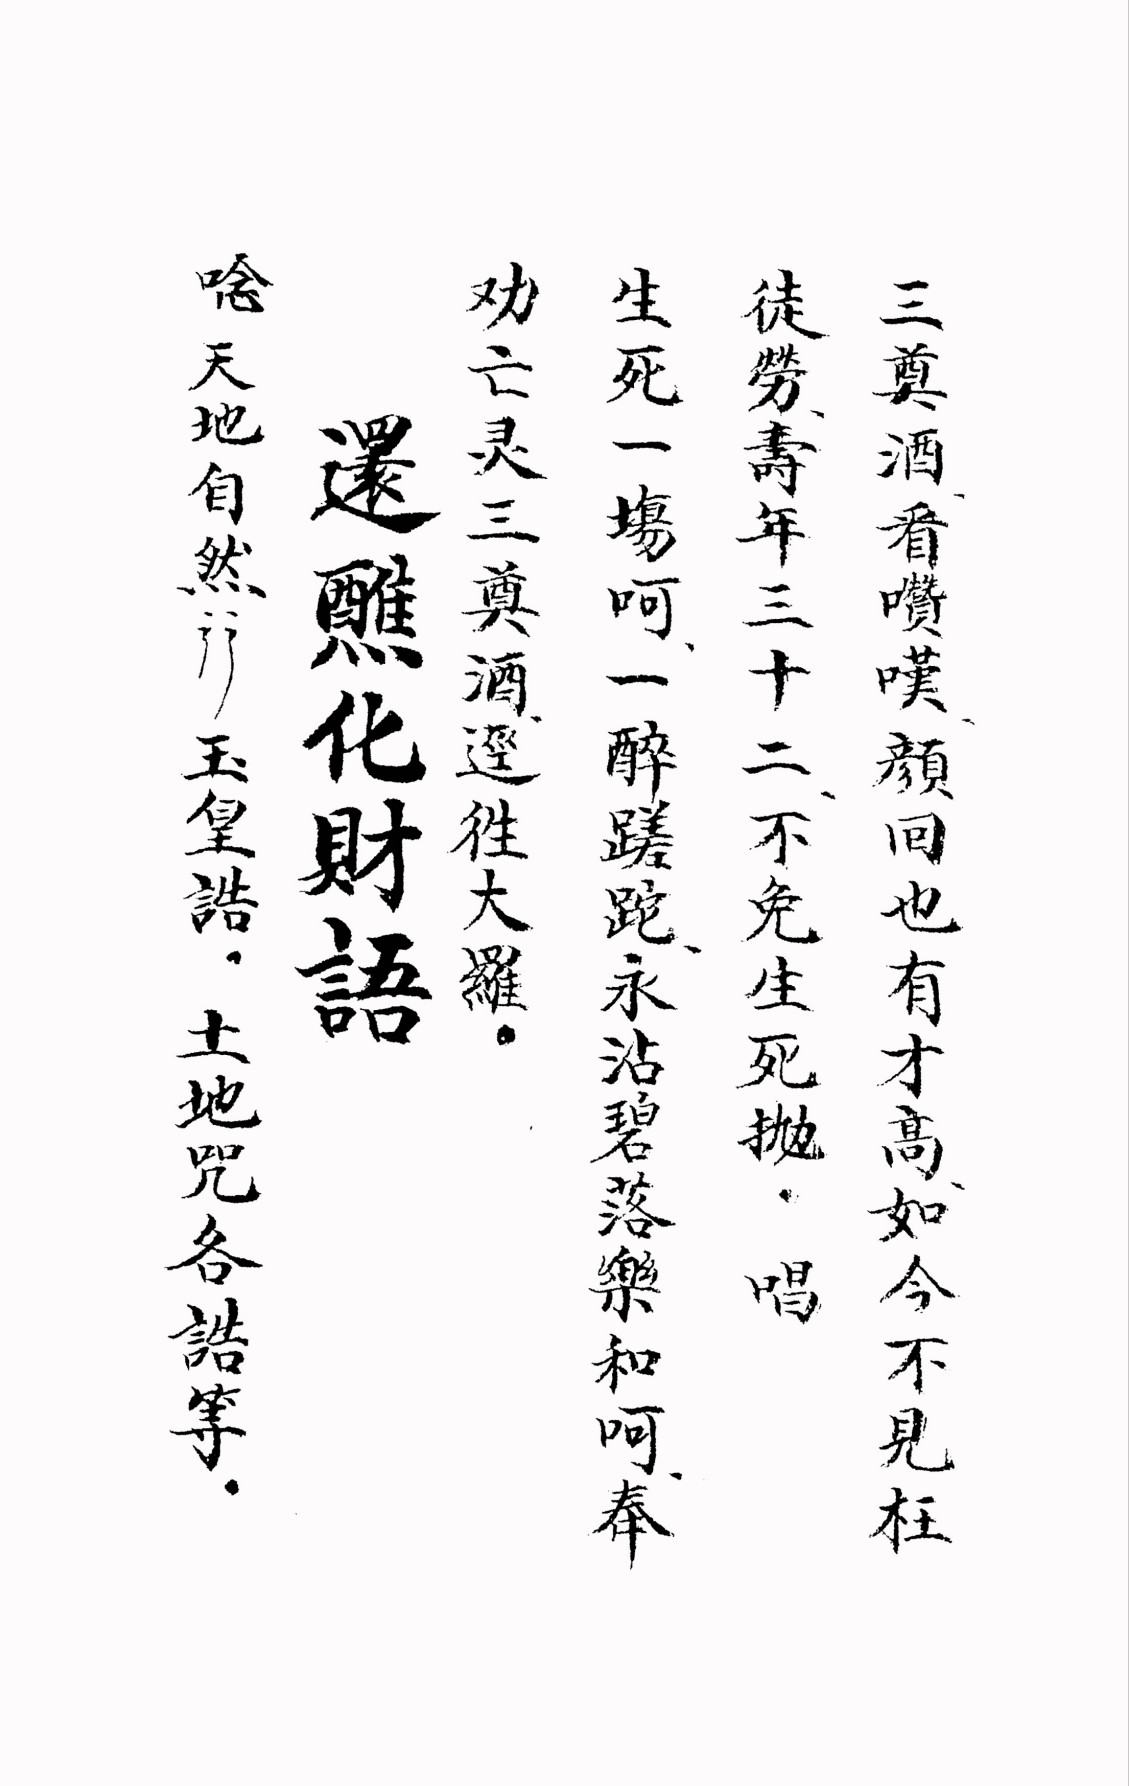 三奠酒、看嚽嘆、顔回也有才高、如今不見枉
徒勞、壽年三十二、不免生死抛。唱
生死一場呵、一醉蹉跎、永沾碧落樂和呵、奉
劝亡灵三奠酒、逕徃大羅。
還醮化財語
唸天地自然 玉皇誥。土地咒各誥等。